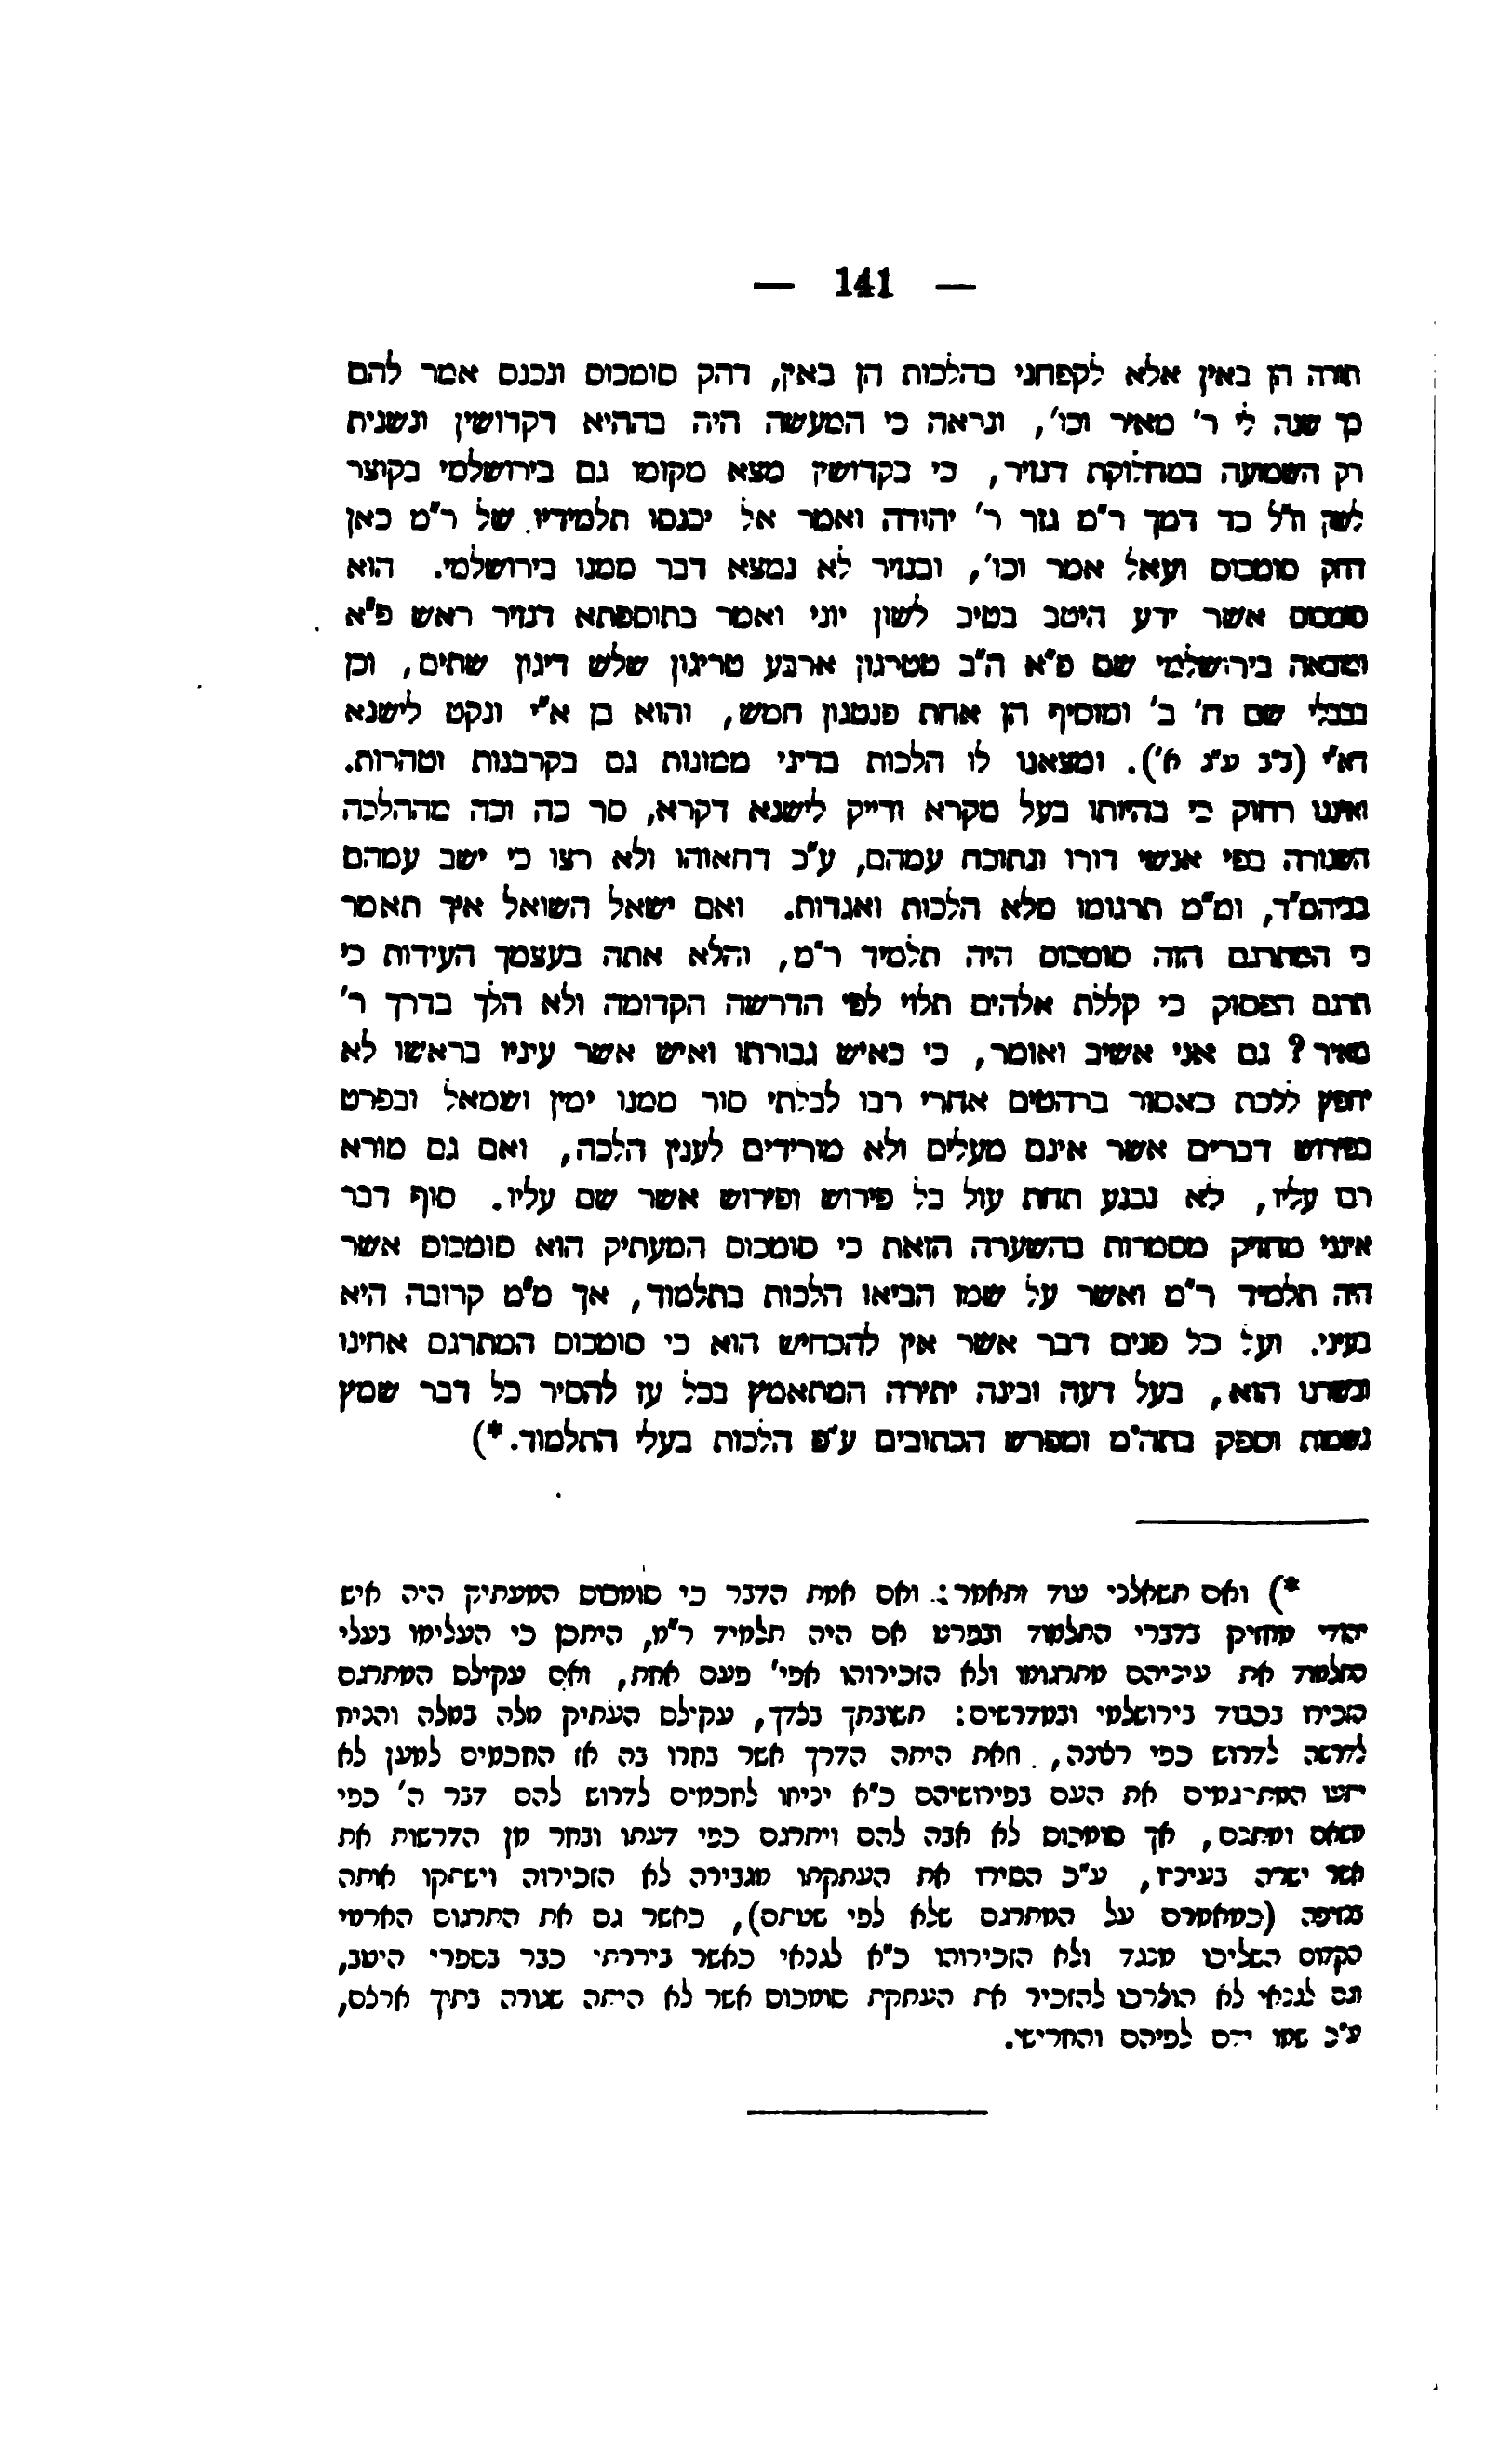 — 141 —
תורה הן באין אלא לקפחני בהלכות הן באין, דחק סומכוס ונכנס אמר להם
כך שנה לי ר' מאיר וכו', ונראה כי המעשה היה בההיא דקדושין ונשנית
רק השמועה במחלוקת דנזיר, כי בקדושין מצא מקומו גם בירושלמי בקוצר
לשון וז"ל כד דמך ר"מ גזר ר' יהודה ואמר אל יכנסו תלמידיו של ר"מ כאן
דחק סומכוס ועאל אמר וכו', ובנזיר לא נמצא דבר ממנו בירושלמי. הוא
סומכוס אשר ידע היטב בטיב לשון יוני ואמר בתוספתא דנזיר ראש פ"א
ומובאה בירושלמי שם פ"א ה"ב טטרגון ארבע טריגון שלש דיגון שתים, וכן
בבבלי שם ח' ב' ומוסיף הן אחת פנטגון חמש, והוא בן א"י ונקט לישנא
דא"י (ב"ב ע"ג א'). ומצאנו לו הלכות בדיני ממונות גם בקרבנות וטהרות.
ואיננו רחוק כי בהיותו בעל מקרא ודייק לישנא דקרא, סר כה וכה מההלכה
השגורה בפי אנשי דורו ונתוכח עמהם, ע"כ דחאוהו ולא רצו כי ישב עמהם
בביהמ"ד, ומ"מ תרגומו מלא הלכות ואגדות. ואם ישאל השואל איך תאמר
כי המתרגם הזה סומכוס היה תלמיד ר"מ, והלא אתה בעצמך העידות כי
תרגם הפסוק כי קללת אלהים תלוי לפי הדרשה הקדומה ולא הלך בדרך ר'
מאיר? גם אני אשיב ואומר, כי כאיש גבורתו ואיש אשר עיניו בראשו לא
יחפץ ללכת כאסור ברהטים אחרי רבו לבלתי סור ממנו ימין ושמאל ובפרט
בפירוש דברים אשר אינם מעלים ולא מורידים לענין הלכה, ואם גם מורא
רם עליו, לא נכנע תחת עול כל פירוש ופירוש אשר שם עליו. סוף דבר
אינני מחזיק מסמרות בהשערה הזאת כי סומכוס המעתיק הוא סומכוס אשר
היה תלמיד ר"מ ואשר על שמו הביאו הלכות בתלמוד, אך מ"מ קרובה היא
בעיני. ועל כל פנים דבר אשר אין להכחיש הוא כי סומכוס המתרגם אחינו
ובשרנו הוא, בעל דעה ובינה יתירה המתאמץ בכל עז להסיר כל דבר שמץ
גשמות וספק בתה"מ ומפרש הכתובים ע"פ הלכות בעלי התלמוד.*)
*) ואם תשאלני עוד ותאמר: ואם אמת הדבר כי סומכוס המעתיק היה איש
יהודי מחזיק בדברי התלמוד ובפרט אם היה תלמיד ר"מ, היתכן כי העלימו בעלי
התלמוד את עיניהם מתרגומו ולא הזכירוהו אפי' פעם אחת, ואם עקילס המתרגם
הזכירו בכבוד בירושלמי ובמדרשים: תשובתך בצדך, עקילס העתיק מלה במלה והניח
לדורשי לדרוש כפי רצונה, וזאת היתה הדרך אשר בחרו בה אז החכמים למען לא
יתעו המתרגמים את העם בפירושיהם כ"א יניחו לחכמים לדרוש להם דבר ה' כפי
משאם ומתנם, אך סומכוס לא אבה להם ויתרגם כפי דעתו ובחר מן הדרשות את
אשר ישרה בעיניו, ע"כ הסירו את העתקתו מגבירה לא הזכירוה וישתקו אותה
בנזיפה (כמאמרם על המתרגם שלא לפי שטתם), כאשר גם את התרגום הארמי
הקדום השליכו מנגד ולא הזכירוהו כ"א לגנאי כאשר ביררתי כבר בספרי היטב,
וגם לגנאי לא הוצרכו להזכיר את העתקת סומכוס אשר לא היתה שגורה בתוך ארצם,
ע"כ שמו ידם לפיהם והחרישו.